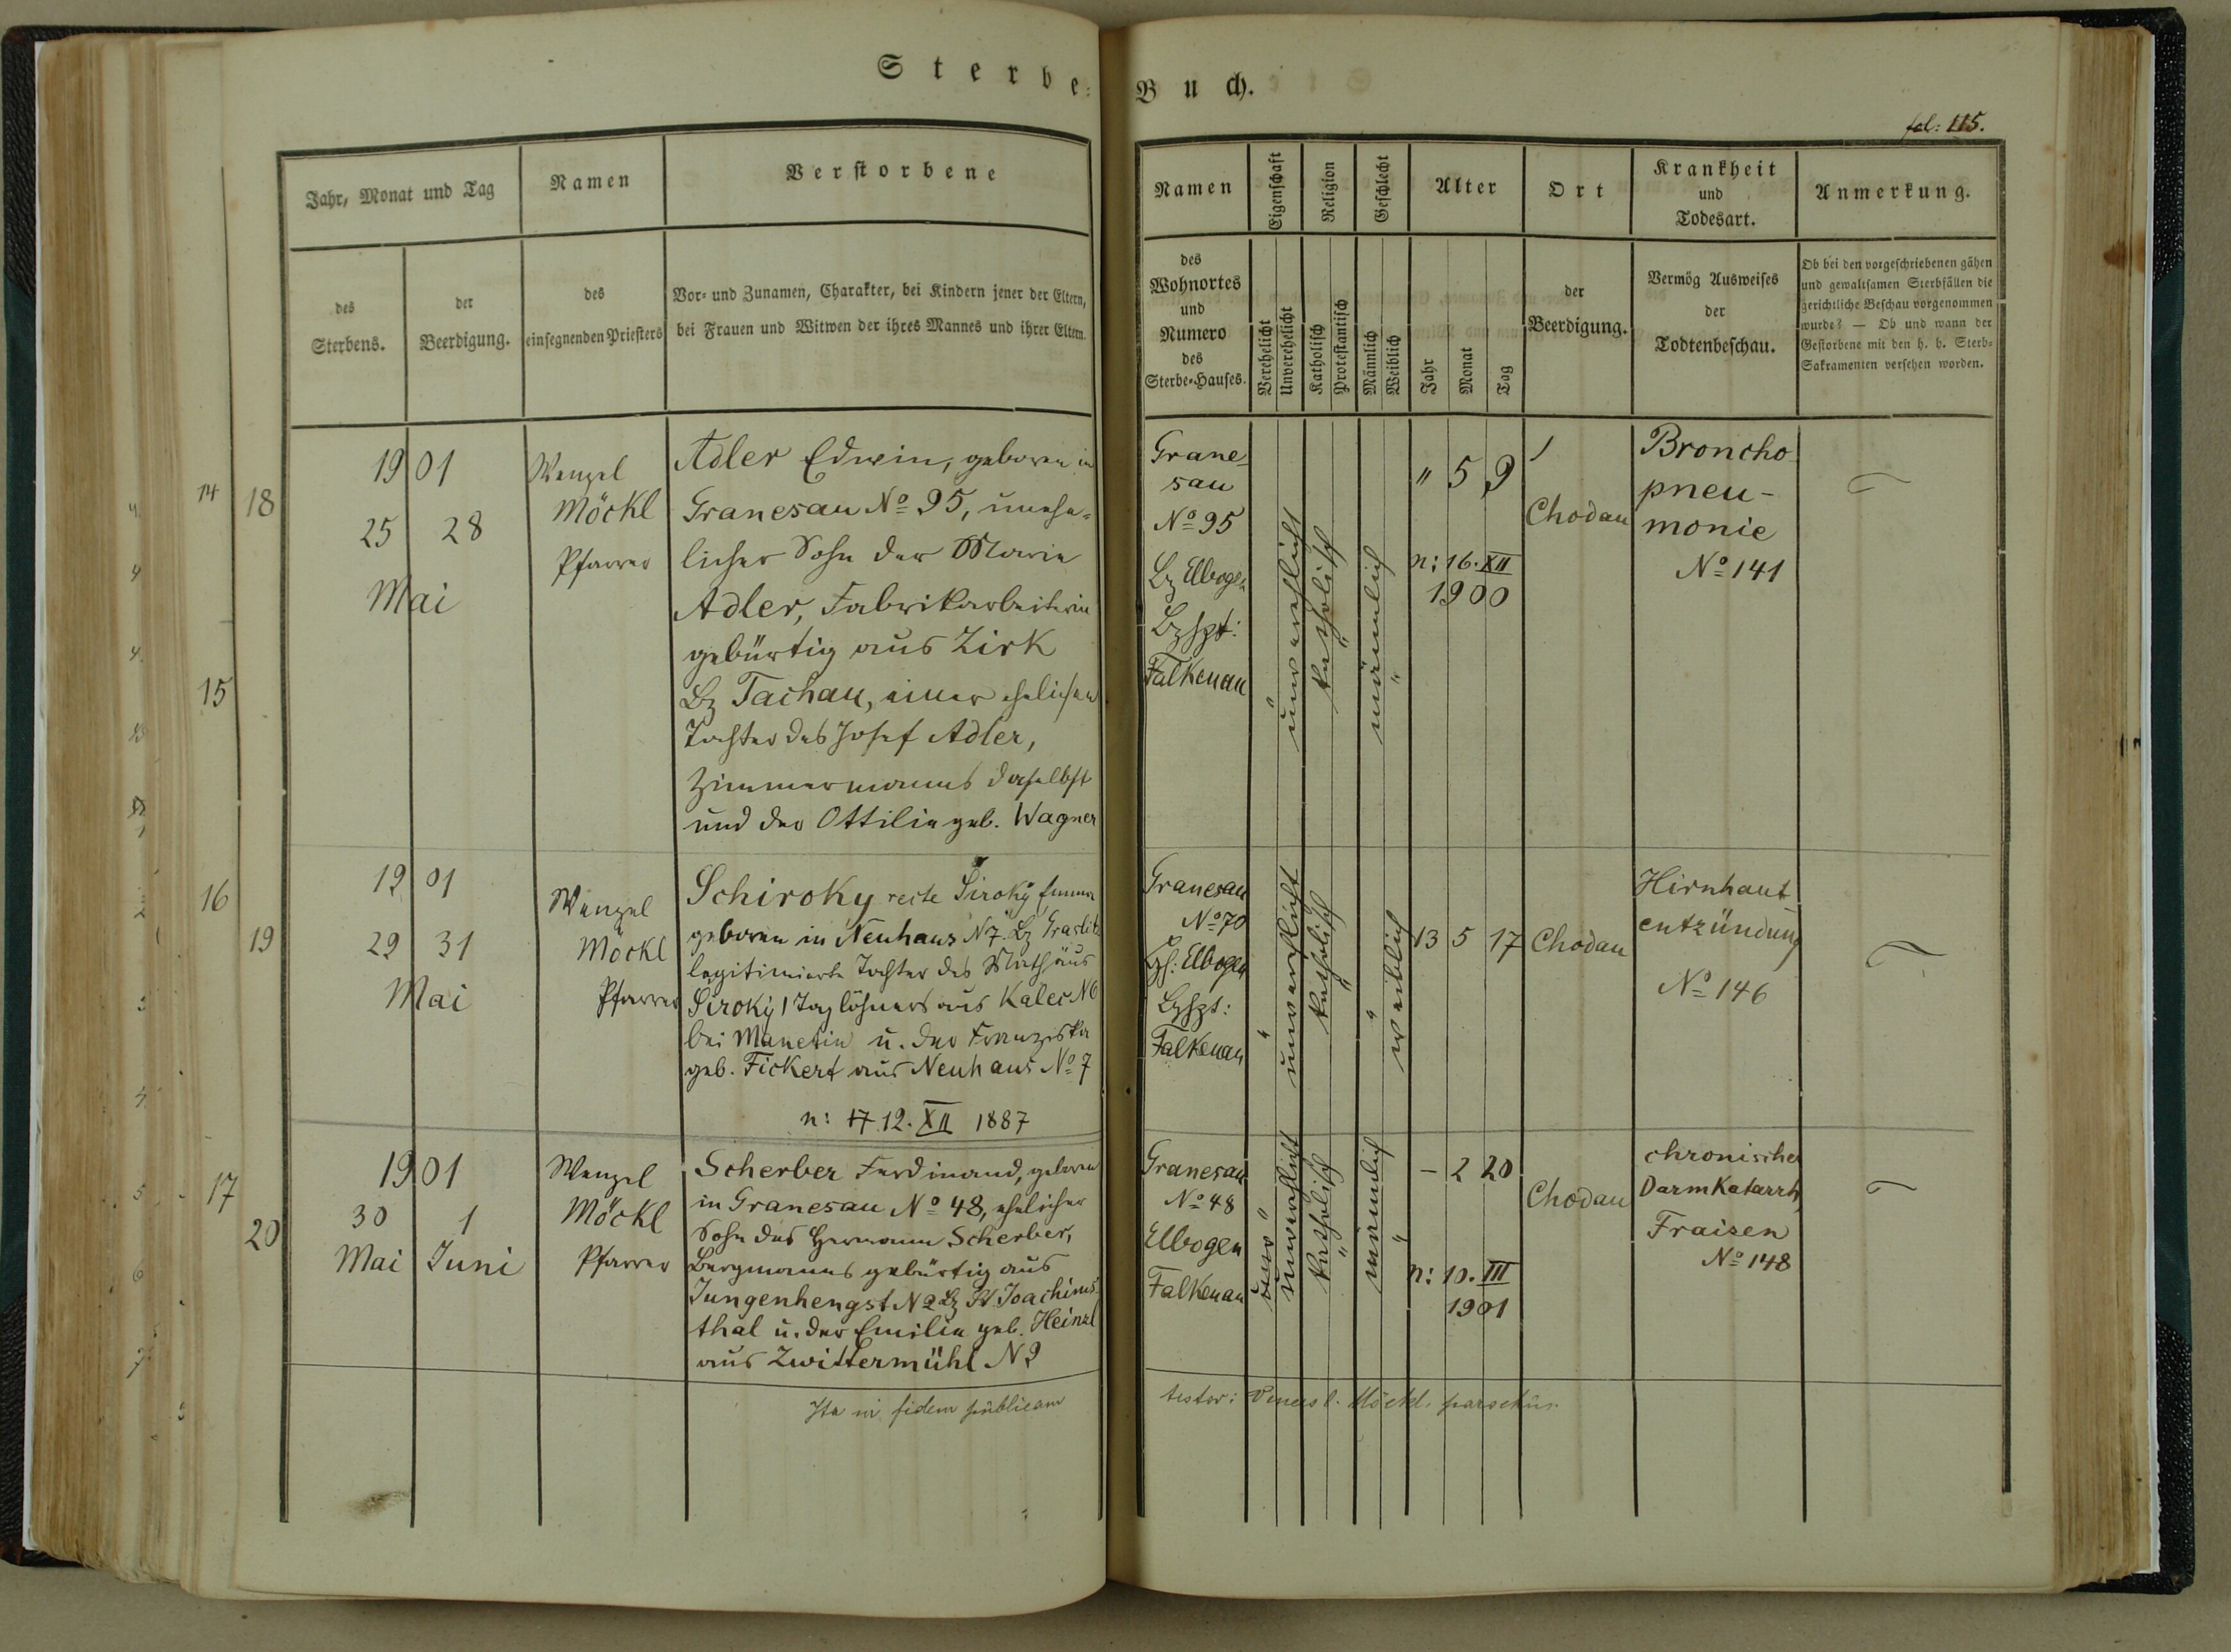 Sterbe-
Buch.
fol: 115.
Jahr, Monat und Tag
Namen
Verstorbene
des
Sterbens.
der
Beerdigung.
des
einsegnenden Priesters
Vor- und Zunamen, Charakter, bei Kindern jener der Eltern,
bei Frauen und Witwen der ihres Mannes und ihrer Eltern.
Namen
Eigenschaft
Religion
Geschlecht
Alter
Ort
Krankheit
und
Todesart.
Anmerkung.
des
Wohnortes
und
Numero
des
Sterbe-Hauses.
Verehelicht
Unverehelicht
Katholisch
Protestantisch
Männlich
Weiblich
Jahr
Monat
Tag
der
Beerdigung.
Vermög Ausweises
der
Todtenbeschau.
Ob bei den vorgeschriebenen gähen
und gewaltsamen Sterbfällen die
gerichtliche Beschau vorgenommen
wurde? — Ob und wann der
Gestorbene mit den h. h. Sterb-
Sakramenten versehen worden.
14
15
16
17
18
1901
25 28
Mai
Wenzel
Möckl
Pfarrer
Adler Edwin, geboren in
Granesau No 95, unehe-
licher Sohn der Maria
Adler, Fabrikarbeiterin
gebürtig aus Zirk
Bz Tachau, einer ehelichen
Tochter des Josef Adler,
Zimmermanns daselbst
und der Ottilia geb. Wagner
Grane-
sau
No 95
Bz Elbogen
Bzhpt:
Falkenau
" unverehlicht
katholisch "
männlich "
" 5 9
n: 16. XII
1900
Chodau
Broncho-
pneu-
monie
No 141
19
1901
29 31
Mai
Wenzel
Möckl
Pfarrer
Schiroky recte Široký Emma
geboren in Neuhaus N 7. Bz Graslitz
legitimierte Tochter des Mathäus
Široký, Taglöhners aus Kalec N 6
bei Manetin u. der Franziska
geb. Fickert aus Neuhaus No 7
n: 17 12. XII 1887
Granesau
No 70
Elbogen
Bzhpt:
Falkenau
" unverehlicht
katholisch
" weiblich
13 5 17
Chodau
Hirnhaut-
entzündung
No 146
20
1901
30 1
Mai Juni
Wenzel
Möckl
Pfarrer
Scherber Ferdinand, geboren
in Granesau No 48, ehelicher
Sohn des Hermann Scherber,
Bergmanns gebürtig aus
Jungenhengst N 2 Bz St Joachims-
thal u. der Emilia geb. Heinzl
aus Zwittermühl N 9
Granesau
No 48
Elbogen
Falkenau
unverehlicht
katholisch "
männlich "
- 2 20
n: 10. III
1901
Chodau
chronischer
Darmkatarrh,
Fraisen
No 148
Ita in fidem publicam
testor: Möckl, parochus.